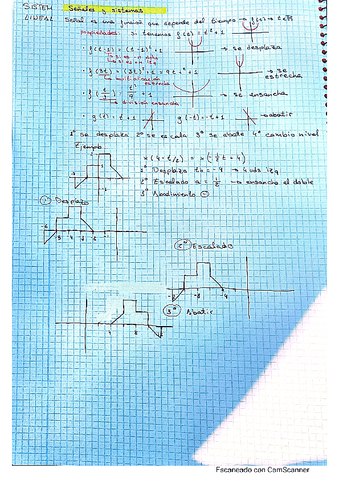 SISTEM Señales y sistemas
LINEAL Señal es una función que depende del tiempo → f(t) → t∈R
propiedades: si tenemos f(t) = t²+1
· f(t-1) = (t-1)²+1 → se desplaza
· f(3t) = (3t)²+1 = 9t²+1 → se estrecha
· f(t/3) = t²/9 + 1 → se ensancha
· g(t) = t+1 g(-t) = -t+1 → abatir
1º se desplaza 2º se escala 3º se abate 4º cambio nivel
Ejemplo
x(4-t/2) = x(-½t+4)
1º Desplazo to = -4 → 4 uds izq
2º Escalado a = ½ → ensancho el doble
3º Abatimiento ⊖
1º Desplazo
2º Escalado
3º Abatir
Escaneado con CamScanner